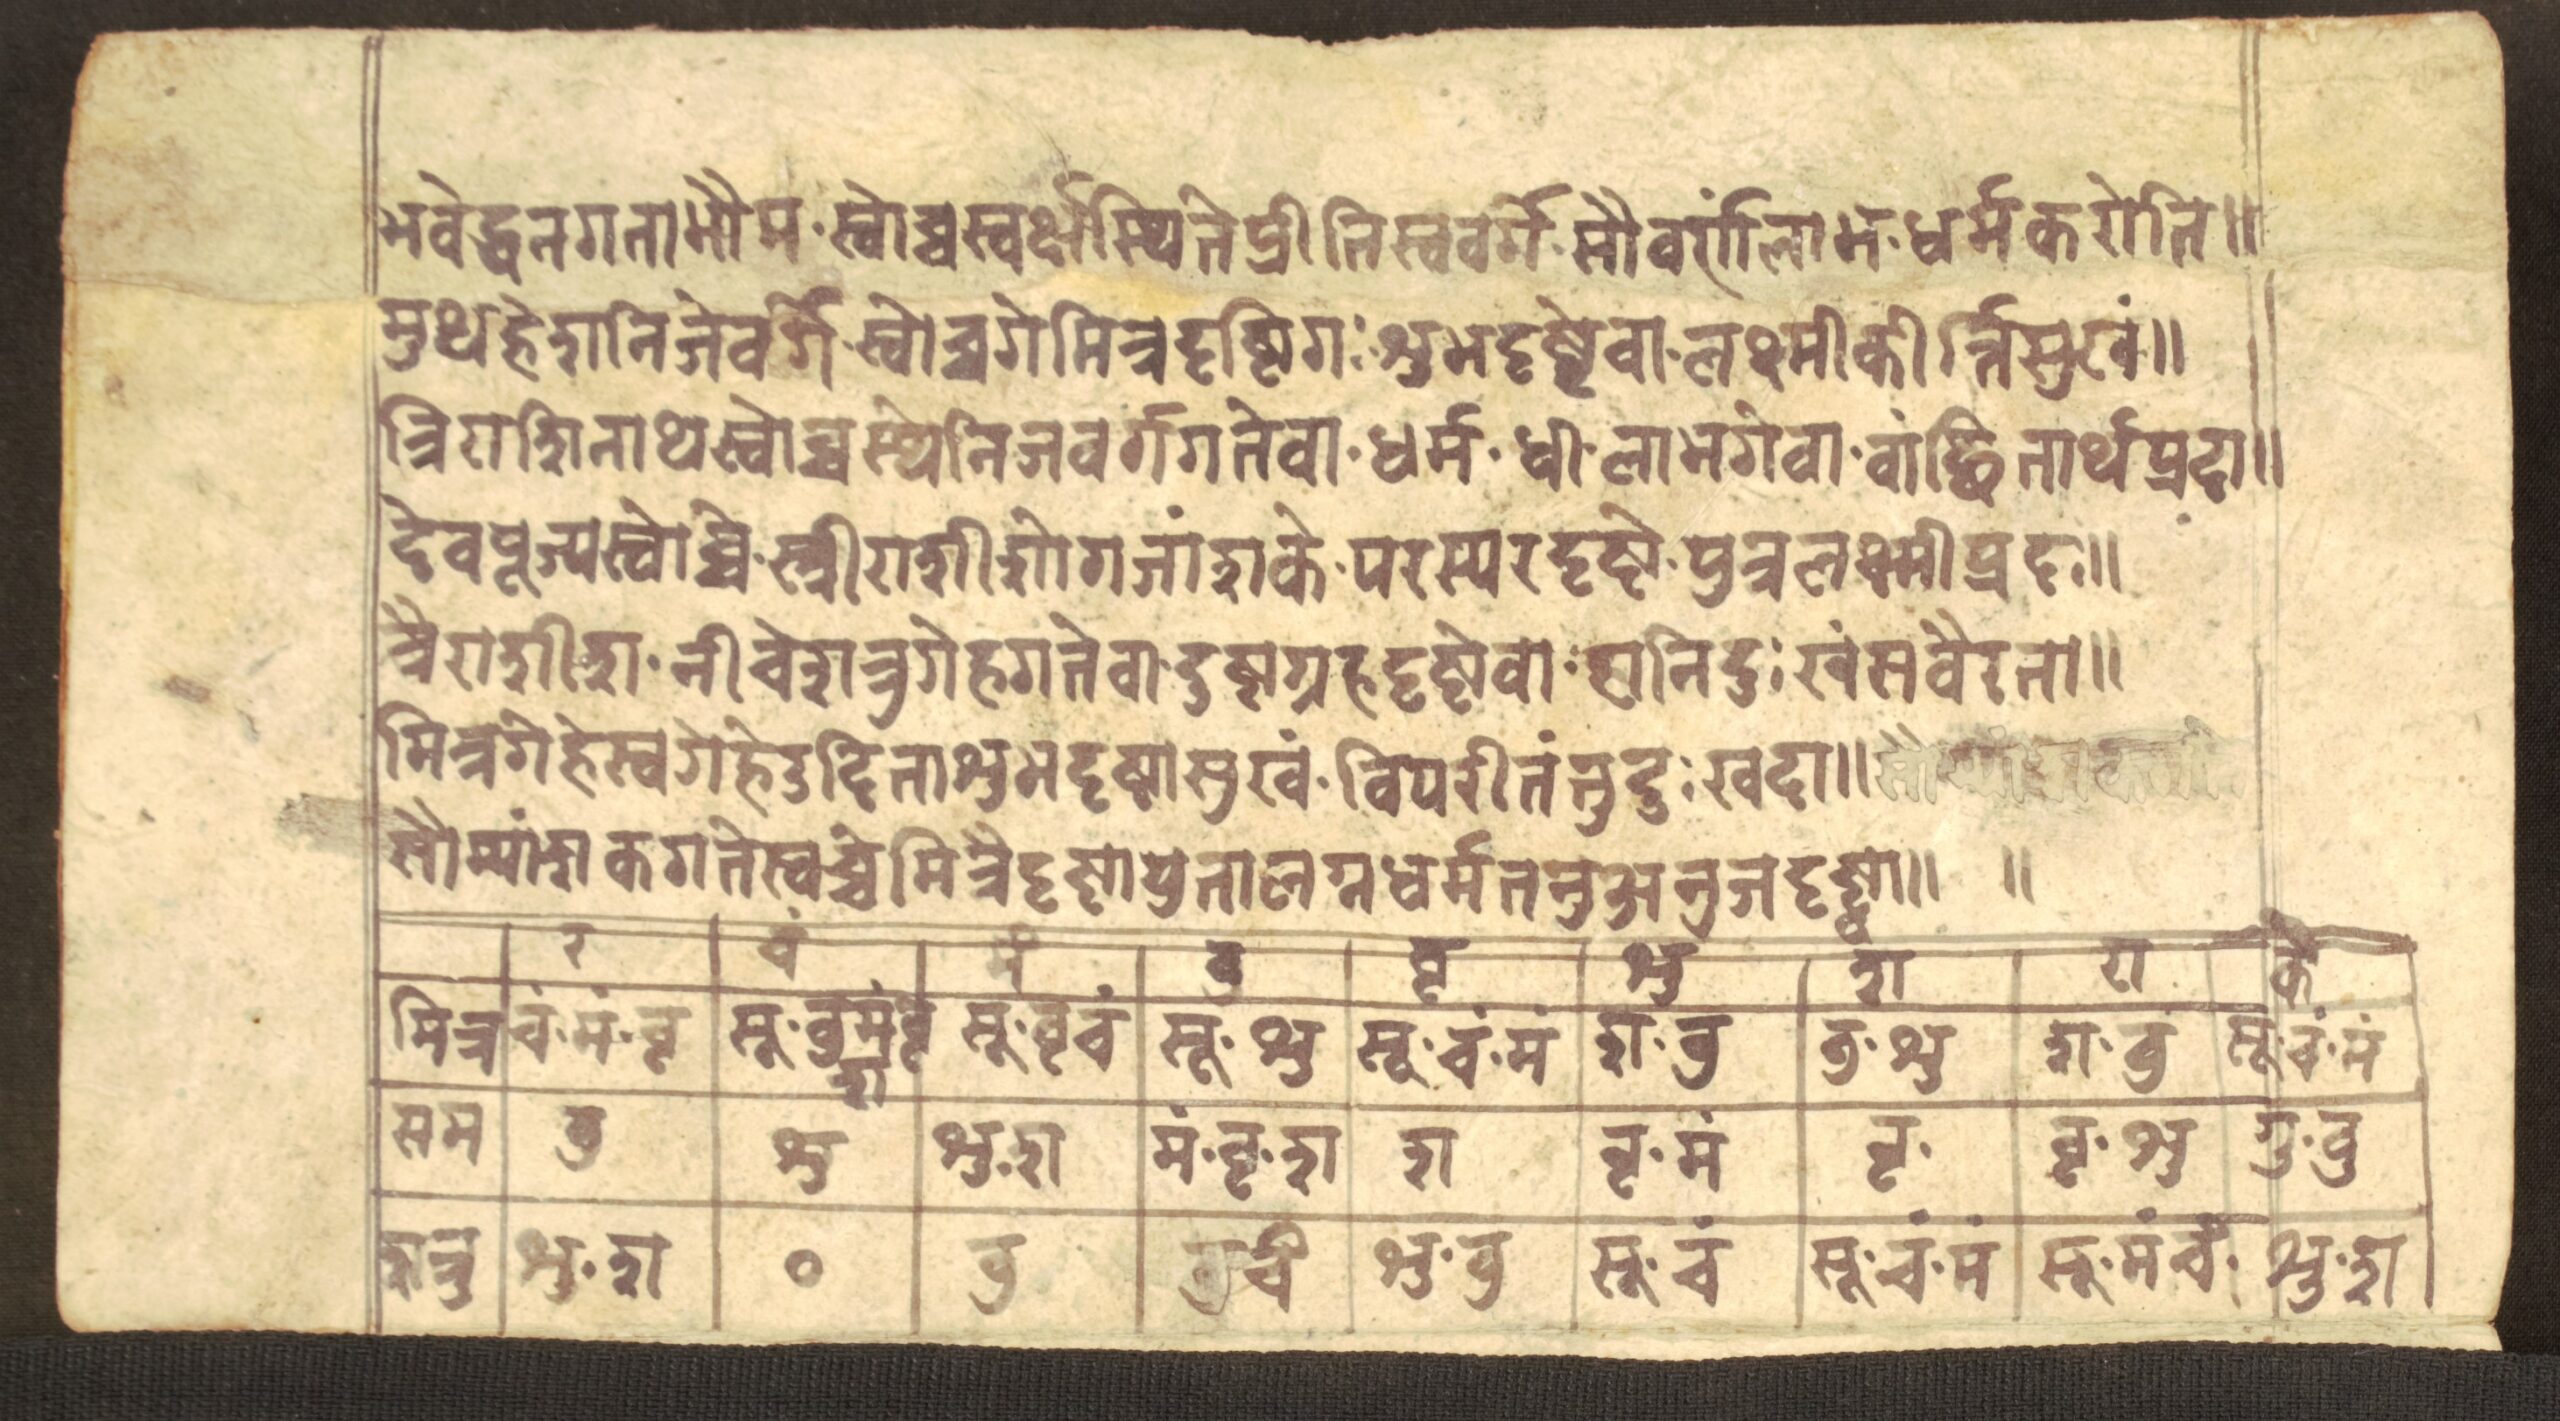 भवेद्धनगता भौम · स्वोच्चस्वर्क्षस्थिते प्रीतिस्ववर्गे · सौवर्णलाभ · धर्म करोति॥
मुथहेशनिजेवर्गे · स्वोच्चगे मित्रदृष्टिगः · शुभदृष्टेवा · लक्ष्मीकीर्त्तिसुखं॥
त्रिराशिनाथस्वोच्चस्थे निजवर्गगतेवा · धर्म · धी · लाभगेवा · वांछितार्थप्रदा॥
देवपूज्यस्वोच्चे · स्त्रीराशीशोगजांशके · परस्परदृष्टे · पुत्रलक्ष्मीप्रदः॥
त्रैराशीश · नीचेशत्रुगेहगतेवा · दुष्टग्रहदृष्टेवा · हानिदुःखंसवैरता॥
मित्रगेहेस्वगेहेउदिताशुभदृष्टासुखं · विपरीतंतुदुःखदा॥
सौम्यांशकगतेस्वच्चेमित्रैदृष्टायुतालग्नधर्मतनुअनुजदृष्टा॥ ॥
र चं मं बु बृ शु श रा के
मित्र चं·मं·बृ सू·बुमंबृश सू·बृचं सू·शु सू·चं·मं श·बु बु·शु श·बु सू·चं·मं
सम बु शु शु·श मं·बृ·श श बृ·मं बृ· बृ·शु गु·बु
शत्रु शु·श ० बु चं शु·बु सू·चं सू·चं·मं सू·मं·चं· शु·श